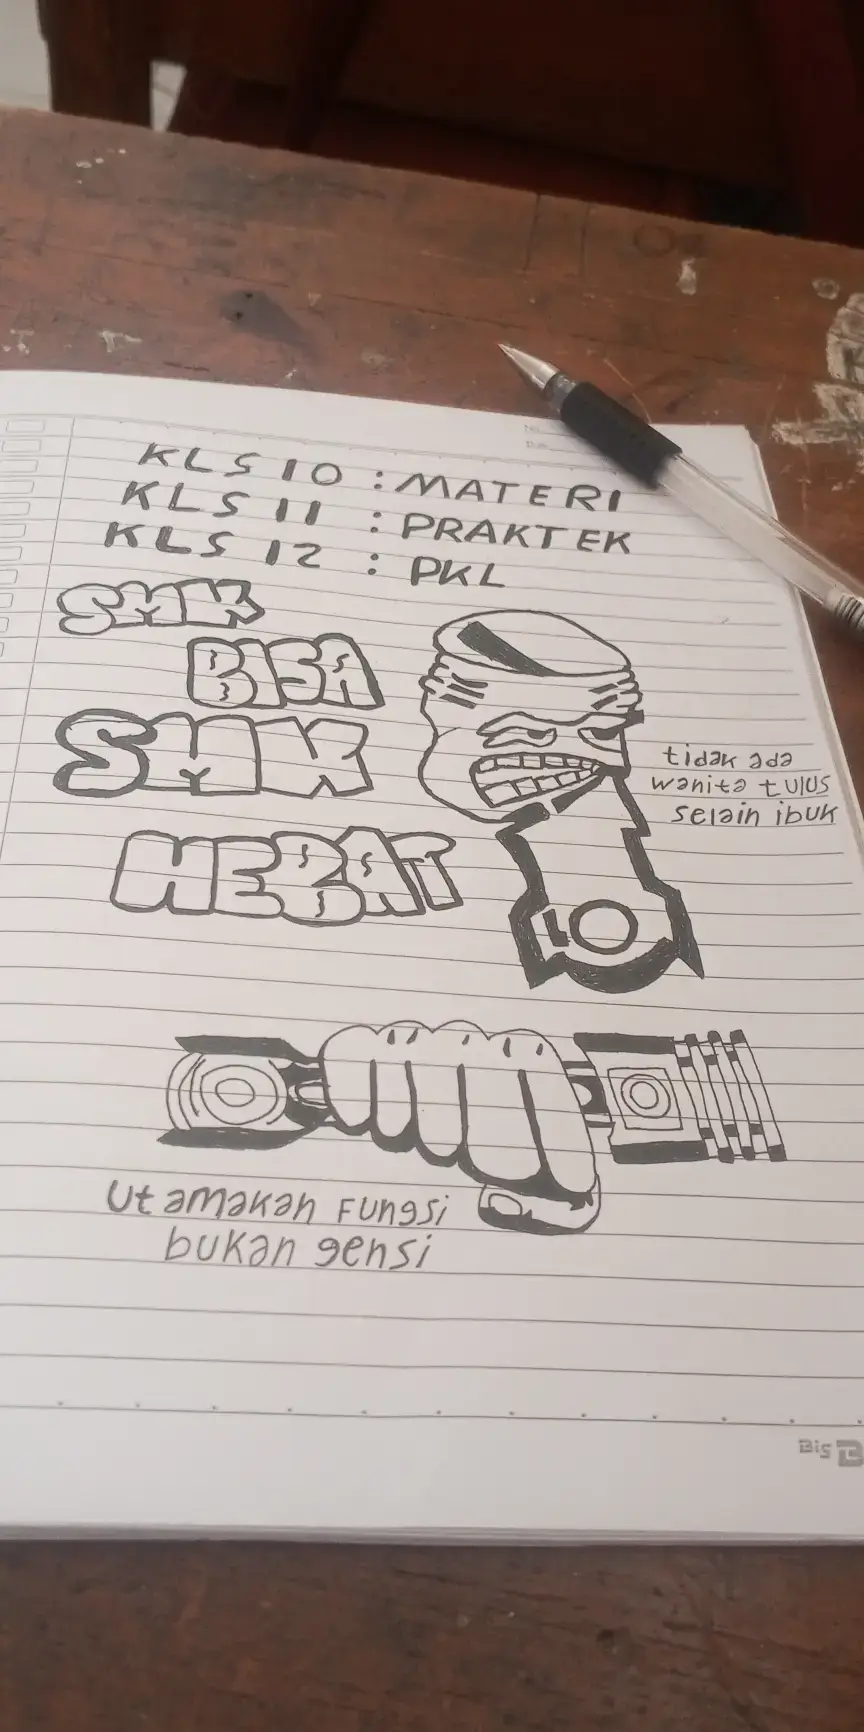 KLS 10 : MATERI
KLS 11 : PRAKTEK
KLS 12 : PKL
SMK
BISA
SMK
HEBAT
tidak ada
wanita tulus
selain ibuk
Utamakan Fungsi
bukan gensi
Big